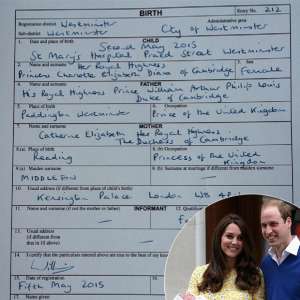 BIRTH
Entry No. 212
Registration district Westminster
Administrative area
Sub-district Westminster
City of Westminster
1. Date and place of birth
CHILD
Second May 2015
St Marys Hospital Praed Street Westminster
2. Name and surname
Her Royal Highness
3. Sex
Princess Charlotte Elizabeth Diana of Cambridge
Female
4. Name and surname
FATHER
His Royal Highness Prince William Arthur Philip Louis
Duke of Cambridge
5. Place of birth
Paddington Westminster
6. Occupation
Prince of the United Kingdom
7. Name and surname
MOTHER
Catherine Elizabeth Her Royal Highness
The Duchess of Cambridge
8.(a) Place of birth
Reading
8.(b) Occupation
Princess of the United
Kingdom
9.(a) Maiden surname
MIDDLETON
9.(b) Surname at marriage if different from maiden surname
10. Usual address (if different from place of child's birth)
Kensington Palace London W8
11. Name and surname (if not the mother or father)
INFORMANT
12. Qualification
13. Usual address
(if different from
that in 10 above)
14. I certify that the particulars entered above are true to the best of my
15. Date of registration
Fifth May 2015